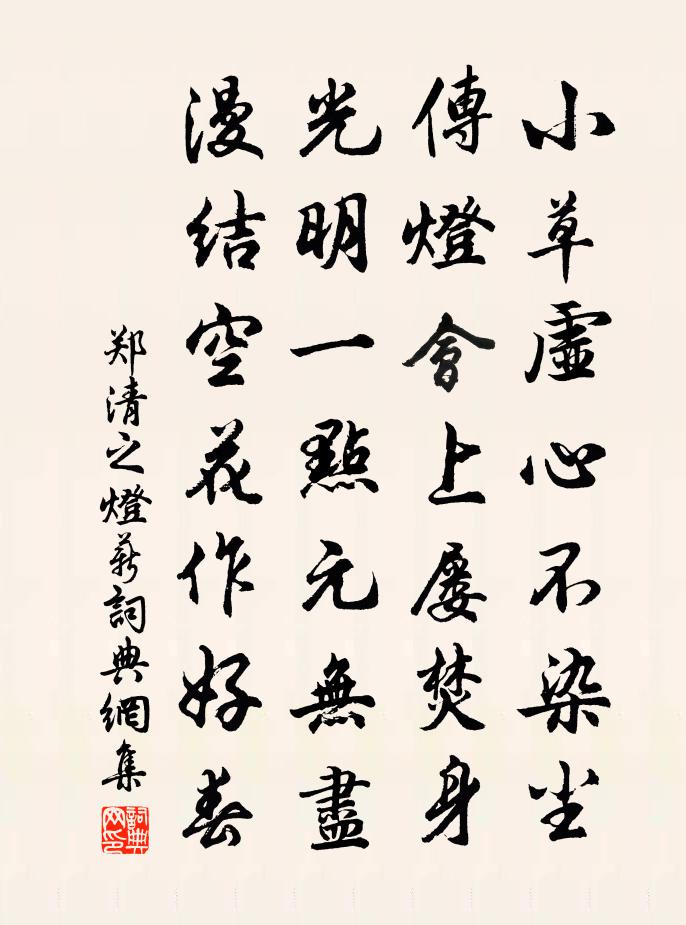 小草虛心不染尘
傳燈會上屡焚身
光明一點元無盡
漫结空花作好春
郑清之燈薪詞典網集
詞典网印